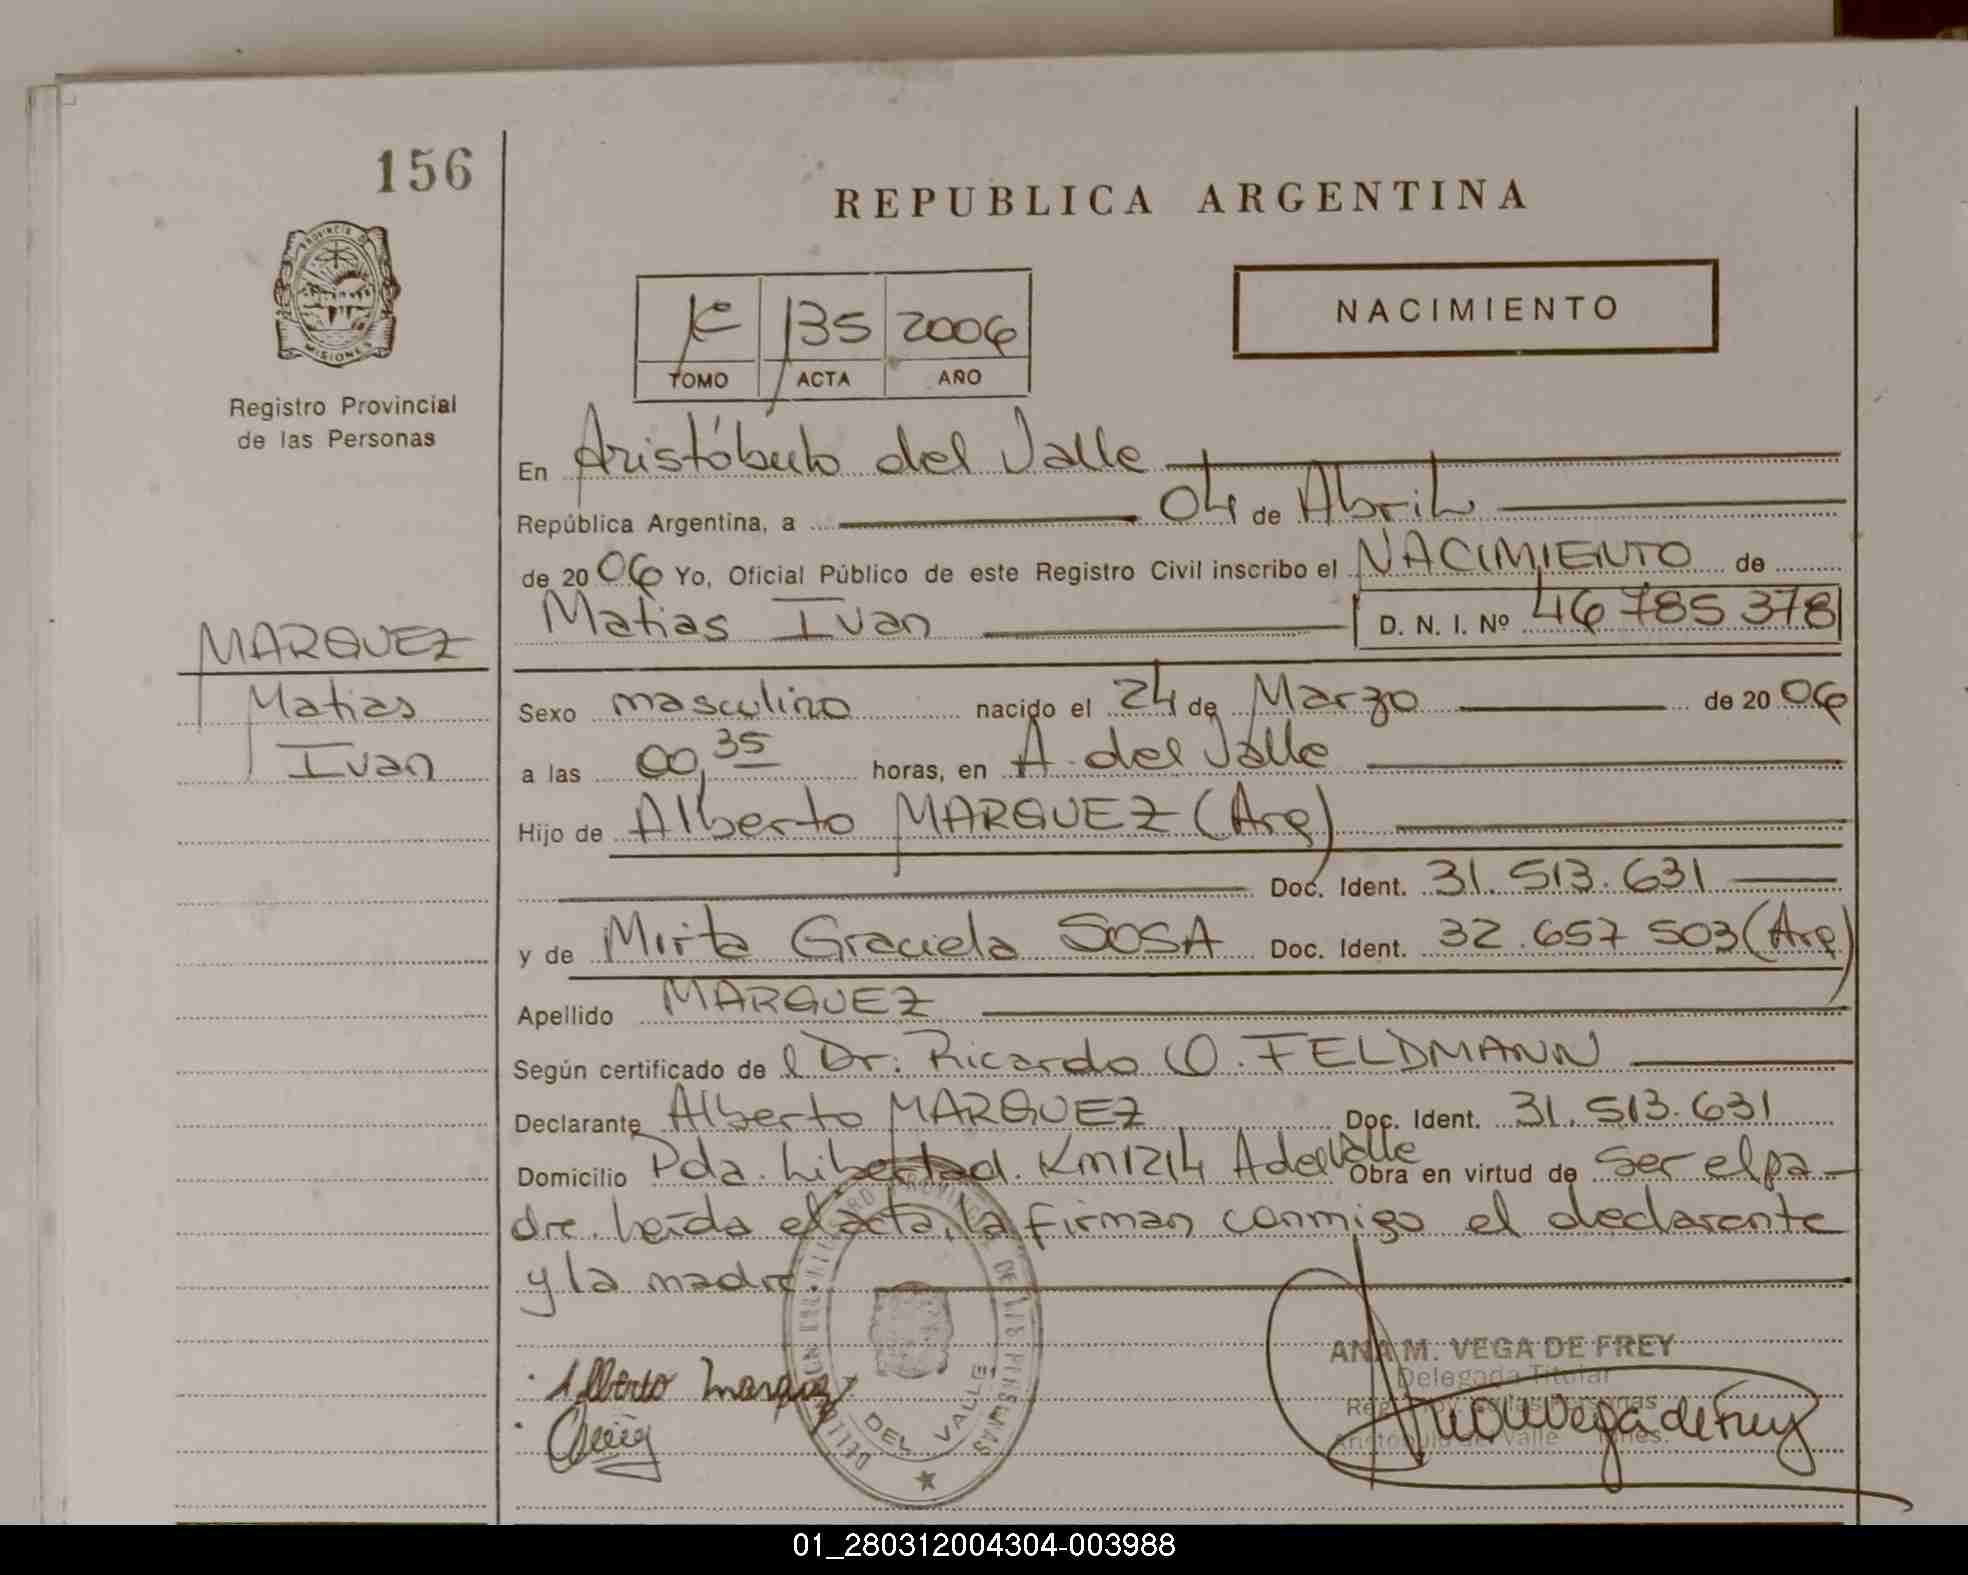 156
REPUBLICA ARGENTINA
PROVINCIA D
MISIONES
NACIMIENTO
135 2006
TOMO ACTA AÑO
Registro Provincial
de las Personas
En Aristóbulo del Valle
República Argentina, a 04 de Abril
de 2006 Yo, Oficial Público de este Registro Civil inscribo el NACIMIENTO de
Matias Ivan D. N. I. Nº 46 785 378
MARQUEZ
Matias
Ivan
Sexo masculino nacido el 24 de Marzo de 2006
a las 00,35 horas, en A. del Valle
Hijo de Alberto MARQUEZ (Arg)
Doc. Ident. 31.513.631
y de Mirta Graciela SOSA Doc. Ident. 32.657 503 (Arg)
Apellido MARQUEZ
Según certificado de l Dr. Ricardo O. FELDMANN
Declarante Alberto MARQUEZ Doc. Ident. 31.513.631
Domicilio Pda. Libertad. Km1214 A del Valle Obra en virtud de ser el pa-
dre. Leída el acta, la firman conmigo el declarante
y la madre.
ANA M. VEGA DE FREY
Delegada Titular
Alberto Marquez
DEL VALLE
01_280312004304-003988